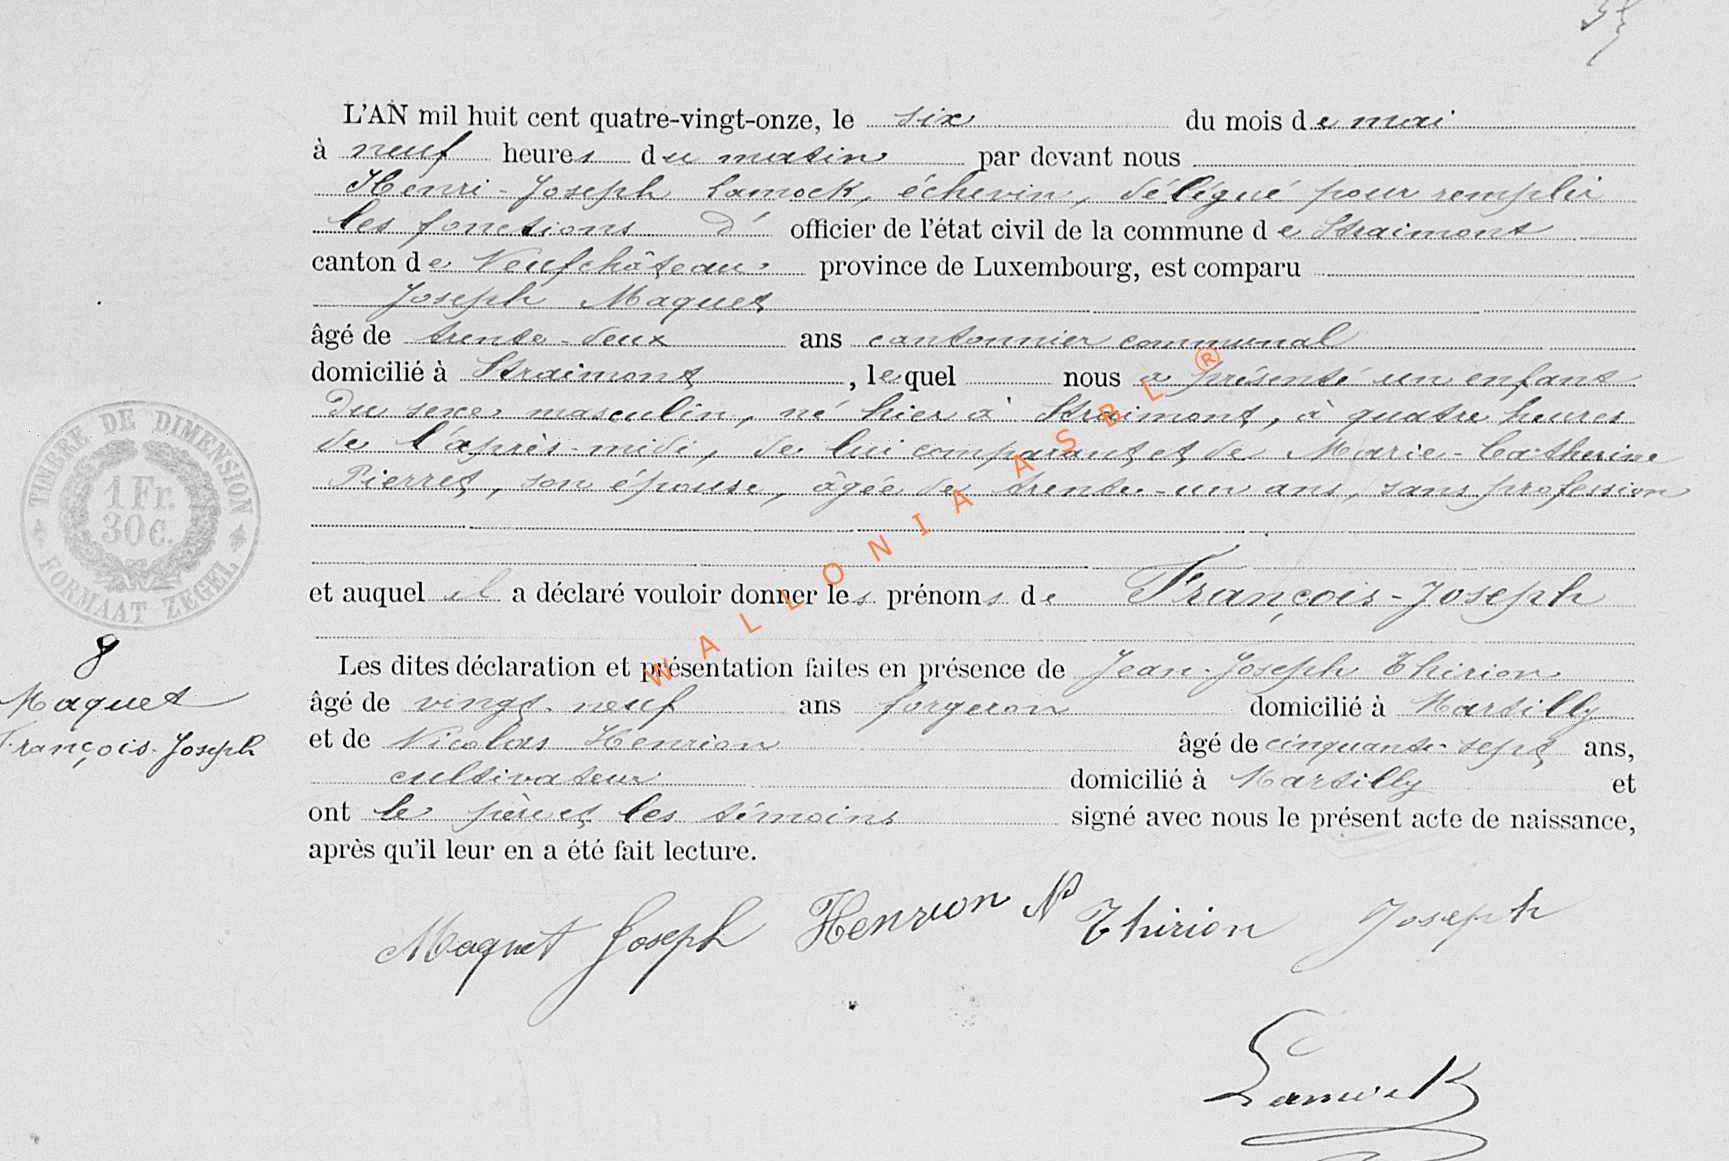 L'AN mil huit cent quatre-vingt-onze, le six du mois de mai
à neuf heures du matin par devant nous
Henri-Joseph Lamock, échevin, délégué pour remplir
les fonctions d' officier de l'état civil de la commune de Straimont
canton de Neufchâteau province de Luxembourg, est comparu
Joseph Maquet
âgé de trente-deux ans cantonnier communal
domicilié à Straimont, lequel nous a présenté un enfant
du sexe masculin, né hier à Straimont, à quatre heures
de l'après-midi, de lui comparant et de Marie-Catherine
Pierret, son épouse, âgée de trente-un ans, sans profession
TIMBRE DE DIMENSION
1 Fr.
30 C.
FORMAAT ZEGEL
et auquel il a déclaré vouloir donner les prénoms de François-Joseph
8
Maquet
François-Joseph
Les dites déclaration et présentation faites en présence de Jean-Joseph Thirion
âgé de vingt-neuf ans forgeron domicilié à Martilly
et de Nicolas Henrion âgé de cinquante-sept ans,
cultivateur domicilié à Martilly et
ont le père et les témoins signé avec nous le présent acte de naissance,
après qu'il leur en a été fait lecture.
Maquet Joseph Henrion N Thirion Joseph
Lamock
WALLONIA ASBL ®